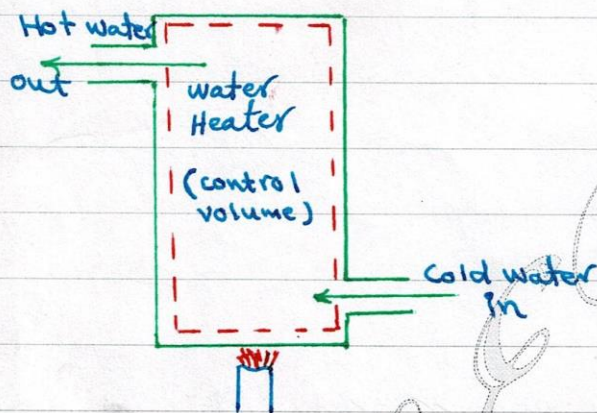 Hot water
out
water
Heater
(control
volume)
Cold water
in